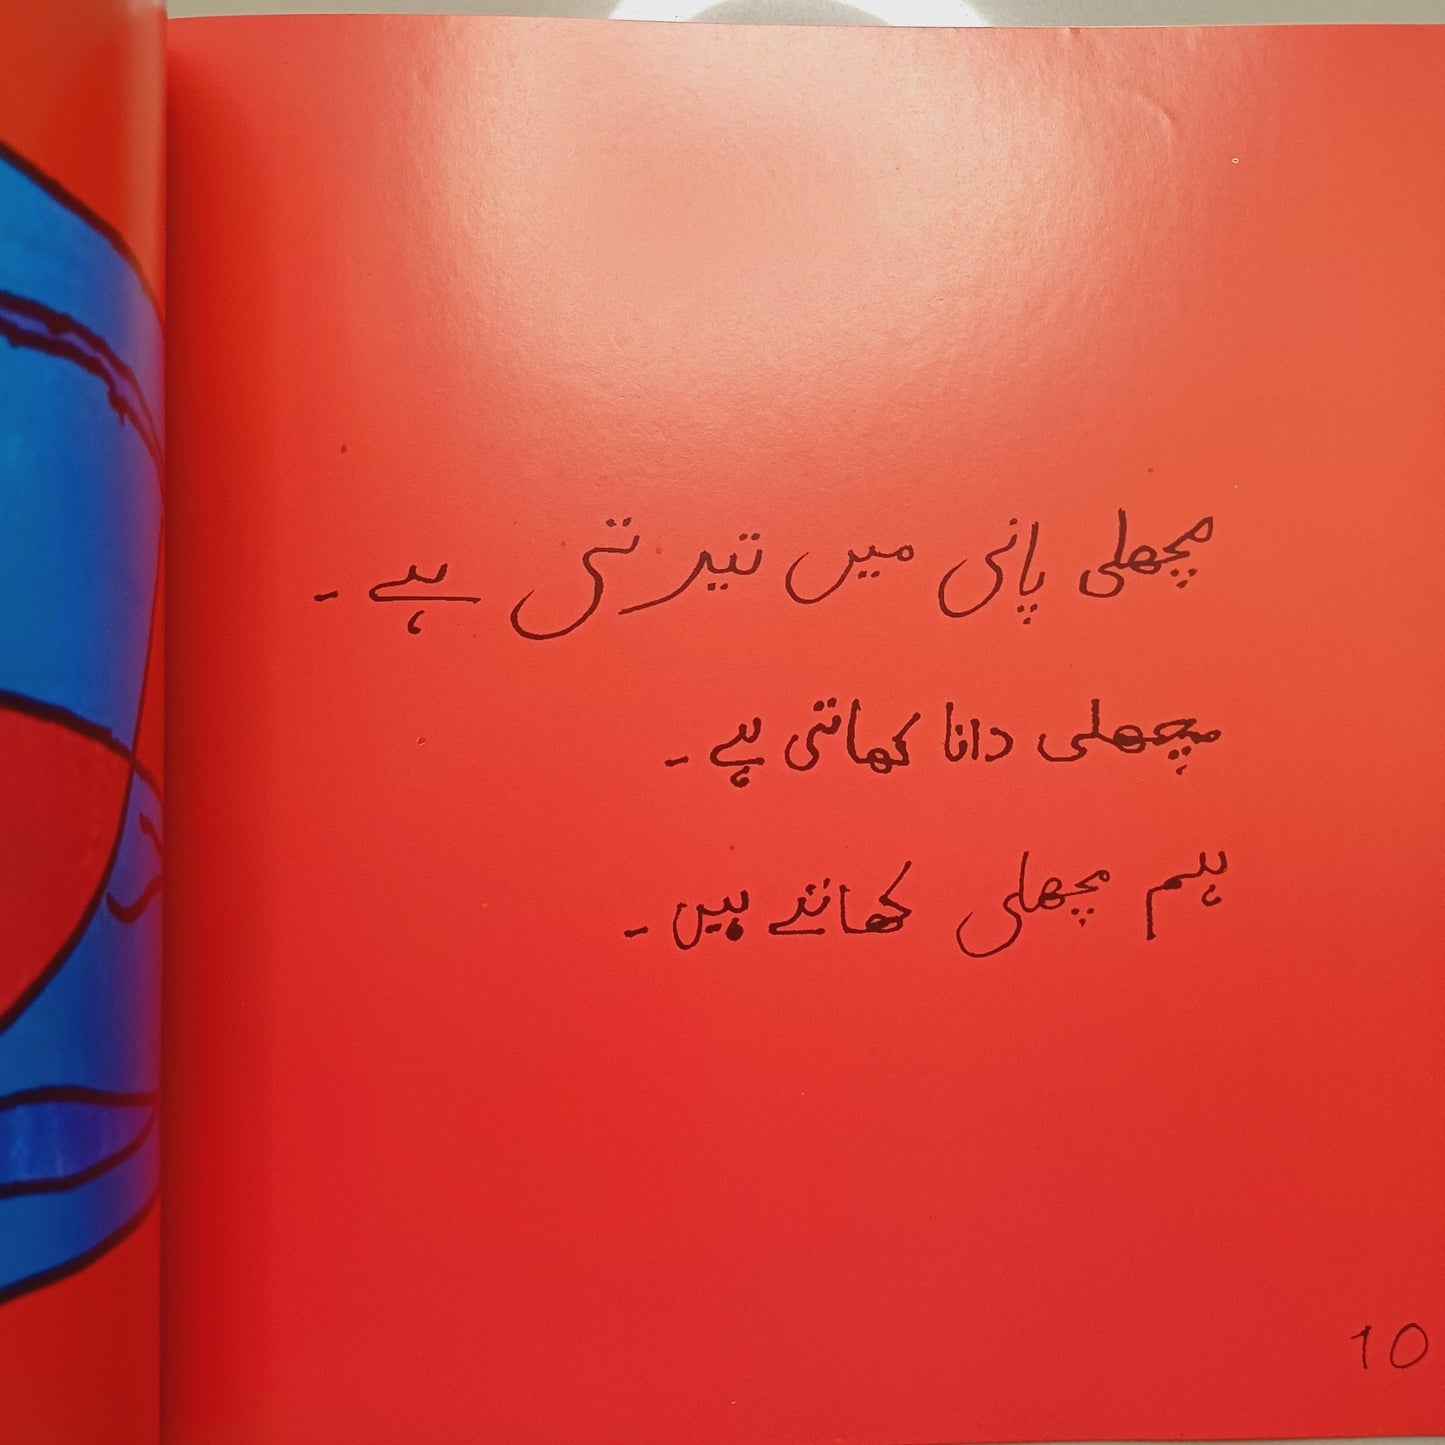 مچھلی پانی میں تیرتی ہے ۔
مچھلی دانا کھاتی ہے ۔
ہم مچھلی کھاتے ہیں ۔
10